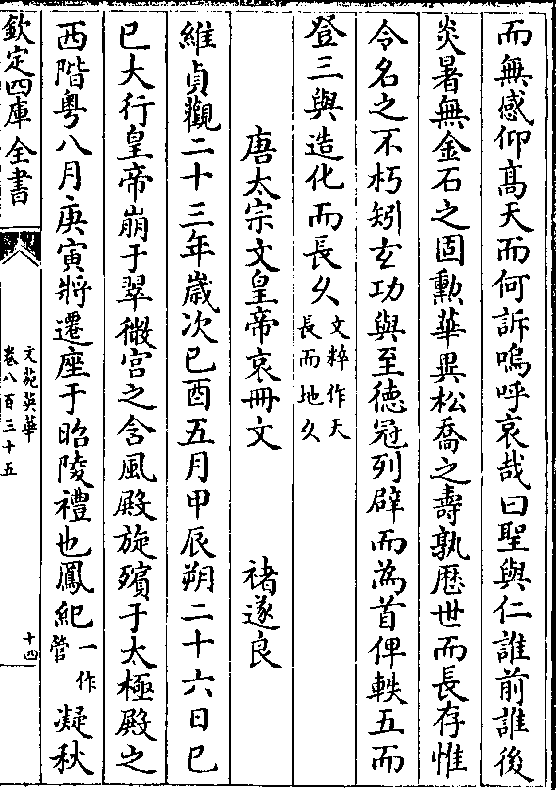 而無感仰髙天而何訴嗚呼哀哉曰聖與仁誰前誰後
炎暑無金石之固勳華異松喬之壽孰歴世而長存惟
令名之不朽矧玄功與至徳冠列辟而為首俾軼五而
登三與造化而長乆文粹作天長而地乆
唐太宗文皇帝哀冊文 禇遂良
維貞觀二十三年歲次己酉五月甲辰朔二十六日己
巳大行皇帝崩于翠微宫之含風殿旋殯于太極殿之
西階粤八月庚寅將遷座于昭陵禮也鳳紀一作管凝秋
欽定四庫全書
文苑英華
卷八百三十五
十四